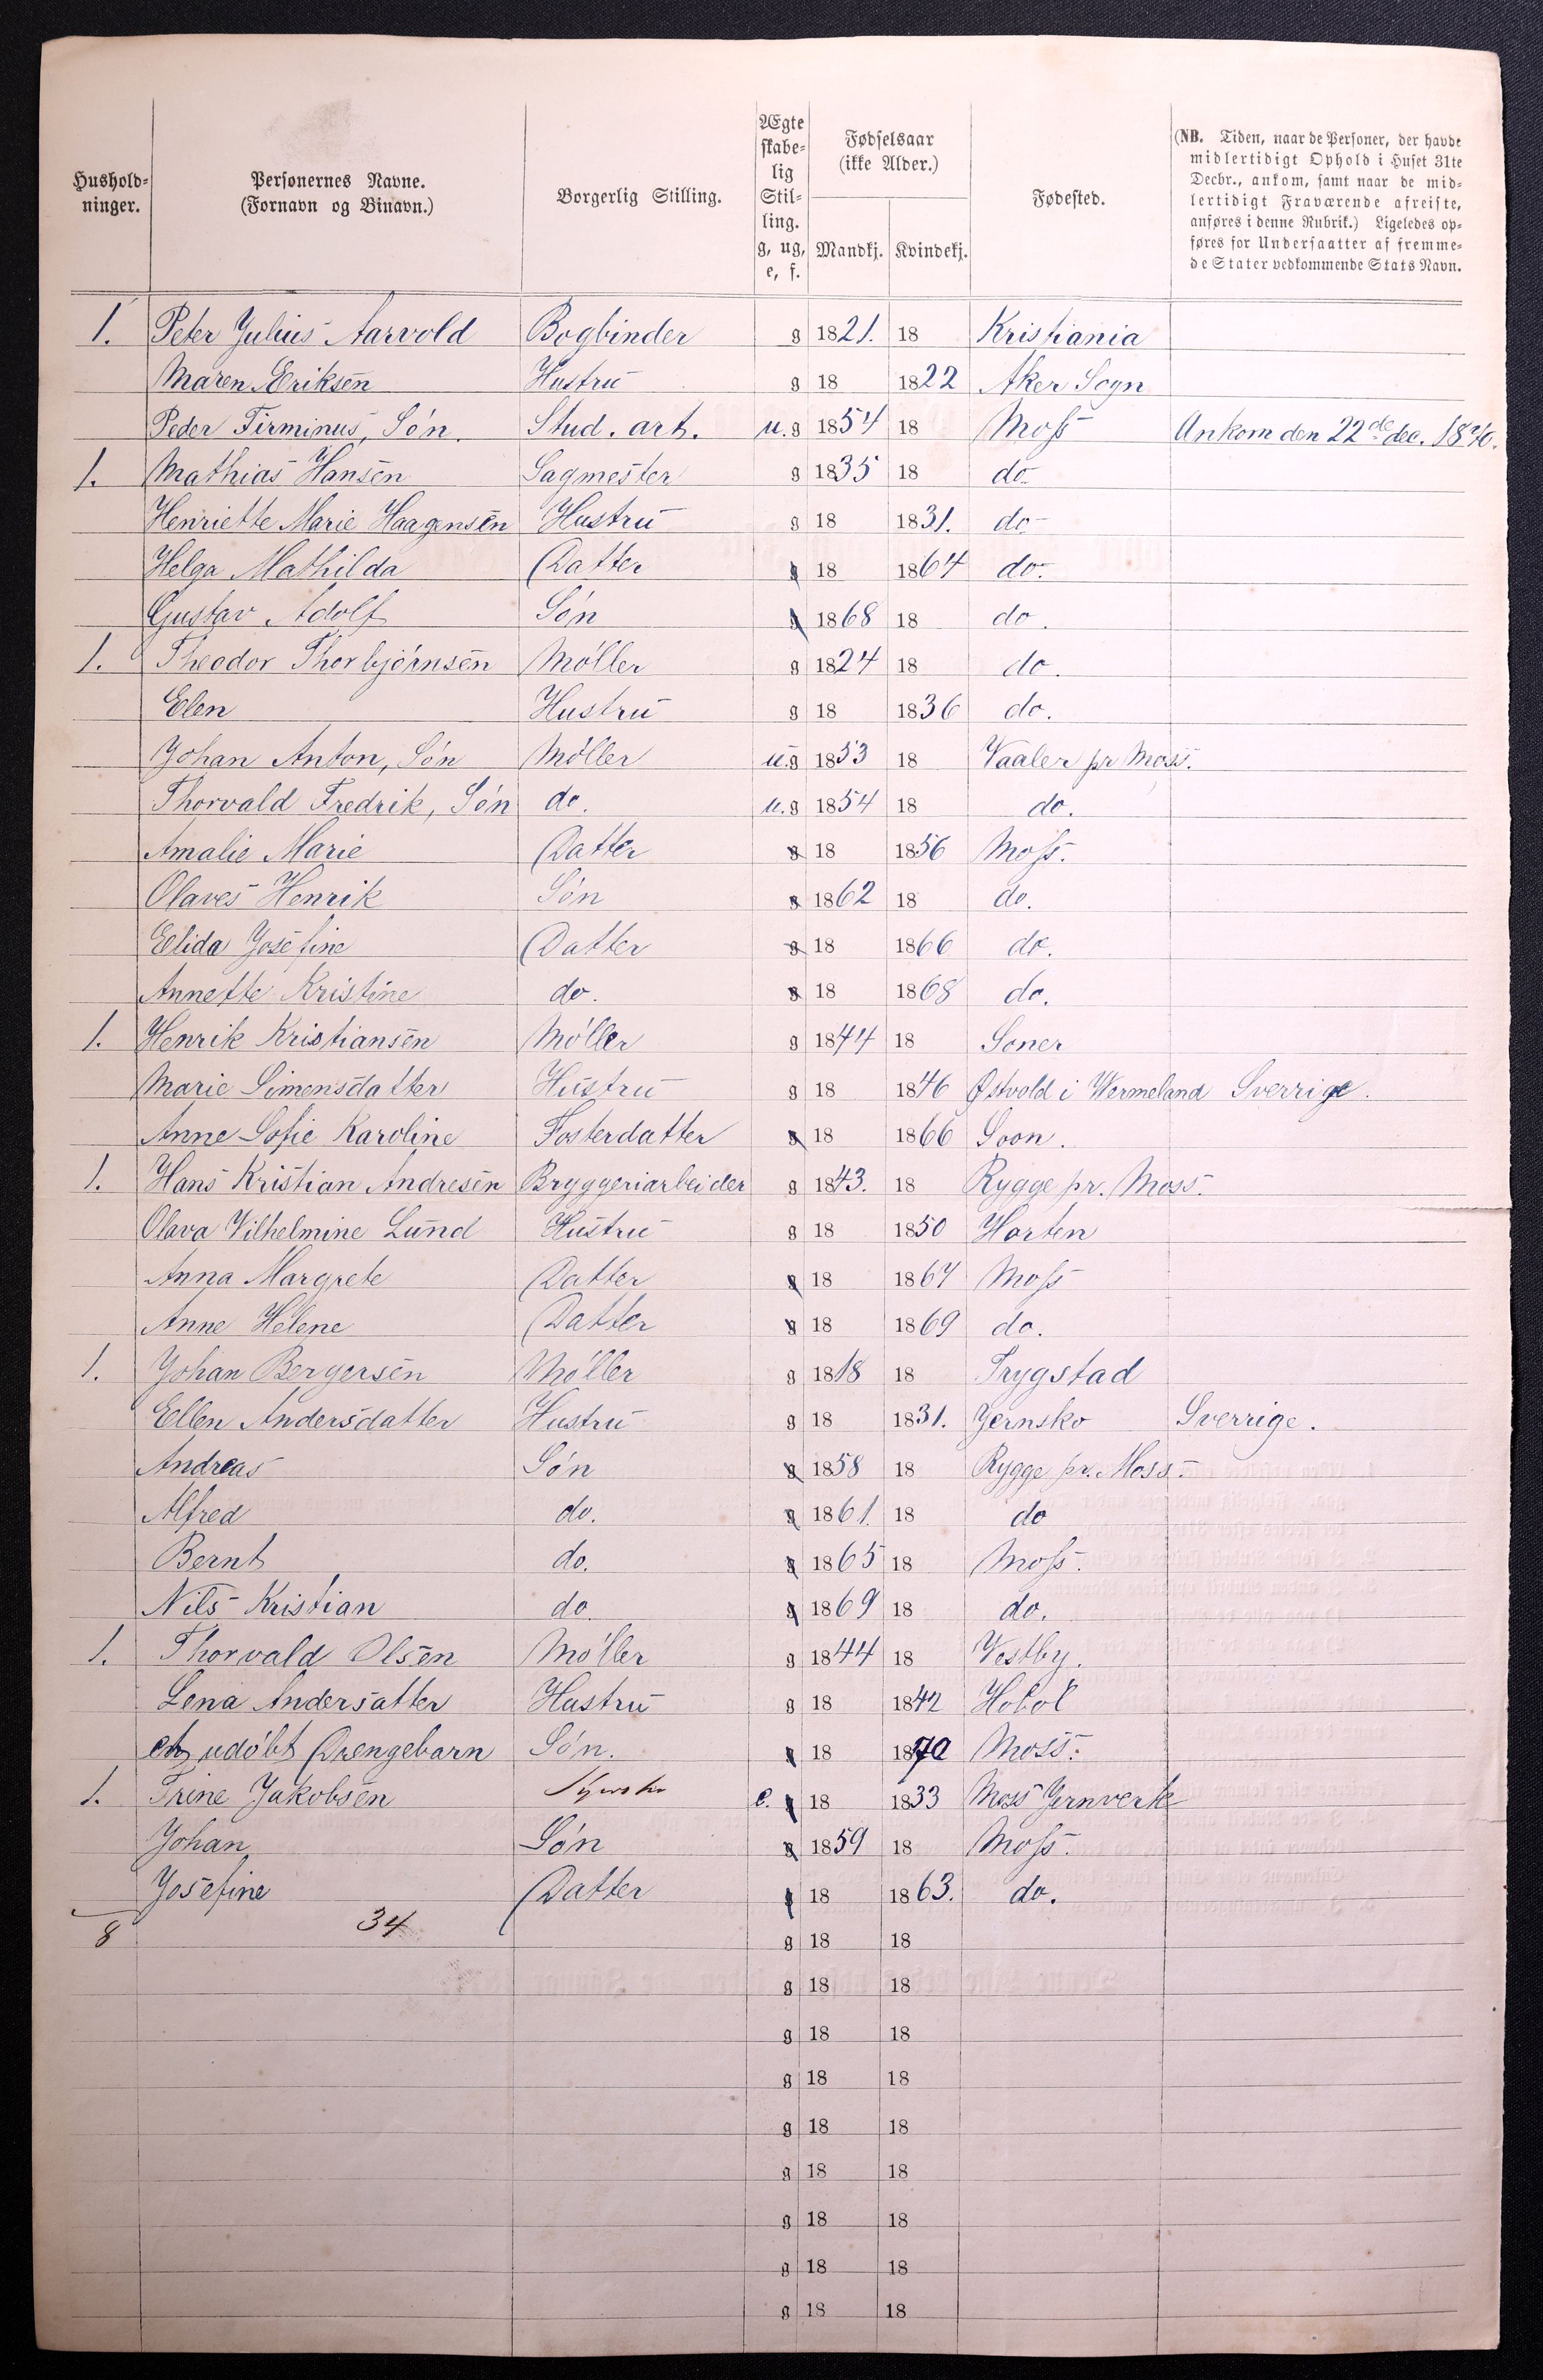 Hushold-
ninger.
Personernes Navne.
(Fornavn og Binavn.)
Borgerlig Stilling.
Ægte
skabe-
lig
Stil-
ling.
g, ug,
e, f.
Fødselsaar
(ikke Alder.)
Mandkj. Kvindekj.
Fødested.
(NB. Tiden, naar de Personer, der havde
midlertidigt Ophold i Huset 31te
Decbr., ankom, samt naar de mid-
lertidigt Fraværende afreiste,
anføres i denne Rubrik.) Ligeledes op-
føres for Undersaatter af fremme-
de Stater vedkommende Stats Navn.
1. Peter Julius Aarvold Bogbinder g 1821. 18 Kristiania
Maren Eriksen Hustru g 18 1822 Aker Sogn
Peder Firminus, Søn. Stud. art. u.g 1854 18 Moss Ankom den 22de dec. 1870.
1. Mathias Hansen Sagmester g 1835 18 do
Henriette Marie Haagensen Hustru g 18 1831. do
Helga Mathilda Datter g 18 1864 do.
Gustav Adolf Søn g 1868 18 do.
1. Theodor Thorbjørnsen Møller g 1824 18 do.
Elen Hustru g 18 1836 do.
Johan Anton, Søn Møller u.g 1853 18 Vaaler pr Moss.
Thorvald Fredrik, Søn do. u.g 1854 18 do.
Amalie Marie Datter g 18 1856 Moss.
Olaves Henrik Søn g 1862 18 do.
Elida Josefine Datter g 18 1866 do.
Annette Kristine do. g 18 1868 do.
1. Henrik Kristiansen Møller g 1844 18 Soner
Marie Simensdatter Hustru g 18 1846 Østvold i Wermeland Sverrige.
Anne Sofie Karoline Fosterdatter g 18 1866 Soon.
1. Hans Kristian Andresen Bryggeriarbeider g 1843. 18 Rygge pr. Moss.
Olava Vilhelmine Lund Hustru g 18 1850 Horten
Anna Margrete Datter g 18 1867 Moss
Anne Helene Datter g 18 1869 do.
1. Johan Bergersen Møller g 1818 18 Trygstad
Ellen Andersdatter Hustru g 18 1831. Jernsko Sverrige.
Andreas Søn g 1858 18 Rygge pr. Moss.
Alfred do. g 1861. 18 do
Bernt do. g 1865 18 Moss.
Nils Kristian do. g 1869 18 do.
1. Thorvald Olsen Møller g 1844 18 Vestby.
Lena Andersatter Hustru g 18 1842 Hobøl
et udøbt Drengebarn Søn. g 18 1870 Moss.
1. Trine Jakobsen e. g 18 1833 Moss Jernverk
Johan Søn g 1859 18 Moss.
Josefine Datter g 18 1863. do.
8 34 g 18 18
g 18 18
g 18 18
g 18 18
g 18 18
g 18 18
g 18 18
g 18 18
g 18 18